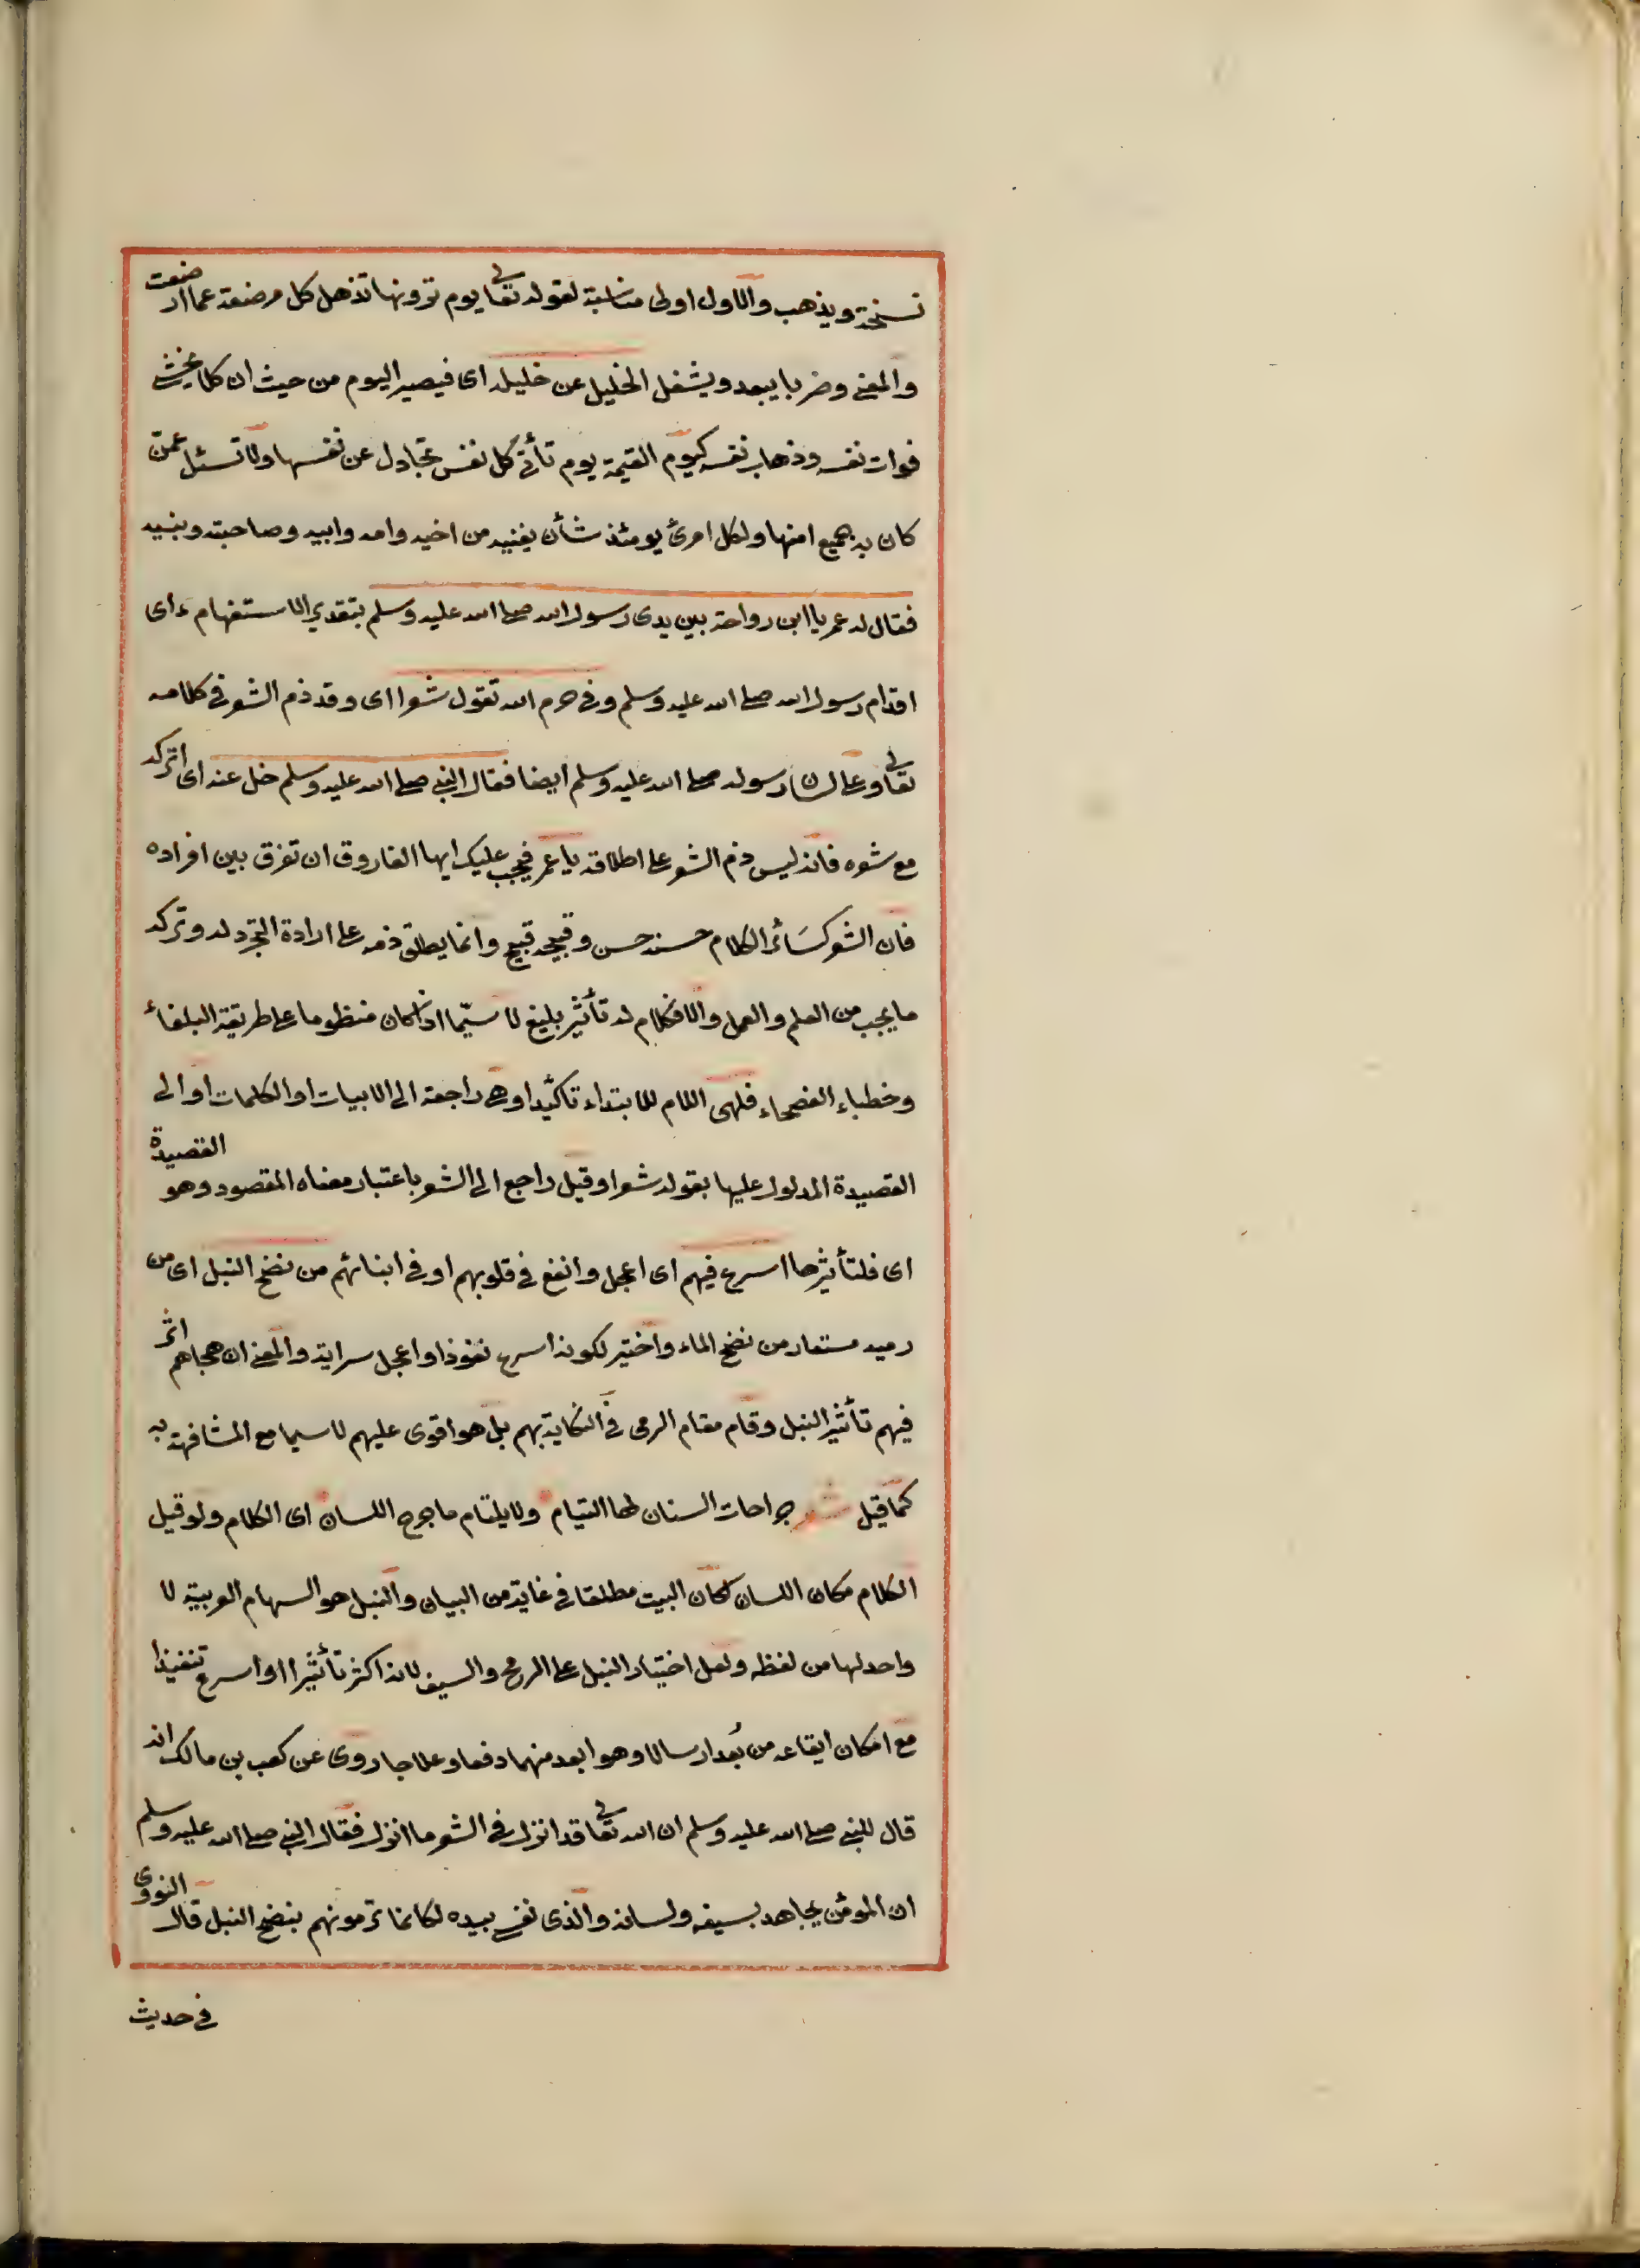 نسخة ويذهب والاول اولى مناسبة لقوله تعالى يوم ترونها تذهل كل مرضعة عما ارضعت
والمعنى وضربا يبعد ويشغل الخليل عن خليله اى فيصير اليوم من حيث ان كلا يخشى
فوات نفسه وذهاب نفسه كيوم القيمة يوم تأتى كل نفس تجادل عن نفسها ولا تسئل عمن
كان به جميع امنها ولكل امرئ يومئذ شأن يغنيه من اخيه وامه وابيه وصاحبته وبنيه
فقال له عمر يا ابن رواحة بين يدى رسول الله صلى الله عليه وسلم بتقدير الاستفهام ءاى
اقدام رسول الله صلى الله عليه وسلم وفى حرم الله تقول شعرا اى وقد ذم الشعر فى كلامه
تعالى وعلى لسان رسوله صلى الله عليه وسلم ايضا فقال النبى صلى الله عليه وسلم خل عنه اى اتركه
مع شعره فانه ليس ذم الشعر على اطلاقه يا عمر فيجب عليك ايها الفاروق ان تفرق بين افراده
فان الشعر كسائر الكلام حسنه حسن وقبيحه قبيح وانما يطلق ذمه على ارادة التجرد له وتركه
ما يجب من العلم والعمل والا فكلام له تأثير بليغ لا سيما اذا كان منظوما على طريقة البلغاء
وخطباء الفصحاء فلهى اللام للابتداء تاكيدا وهى راجعة الى الابيات او الكلمات او الى
القصيدة المدلول عليها بقوله شعرا وقيل راجع الى الشعر باعتبار معناه المقصود وهو القصيدة
اى فلتأثيرها اسرع فيهم اى اعجل وانفع فى قلوبهم او فى ابنائهم من نضح النبل اى من
رميه مستعار من نضح الماء واختير لكونه اسرع نفوذا واعجل سراية والمعنى ان هجاهم اثر
فيهم تأثير النبل وقام مقام الرمى فى النكاية بهم بل هو اقوى عليهم لا سيما مع المشافهة به
كما قيل شعر جراحات السنان لها التيام ولا يلتام ما جرح اللسان اى الكلام ولو قيل
الكلام مكان اللسان لكان البيت مطلقا فى غاية من البيان والنبل هو السهام العربية لا
واحد لها من لفظه ولعل اختيار النبل على الرمح والسيف لانه اكثر تأثيرا او اسرع تنفيذا
مع امكان ايقاعه من بُعد ارسالا وهو ابعد منهما دفعا وعلاجا روى عن كعب بن مالك انه
قال للنبى صلى الله عليه وسلم ان الله تعالى قد انزل فى الشعر ما انزل فقال النبى صلى الله عليه وسلم
ان المؤمن يجاهد بسيفه ولسانه والذى نفسى بيده لكانما ترمونهم بنضح النبل قال النووى
فى حديث